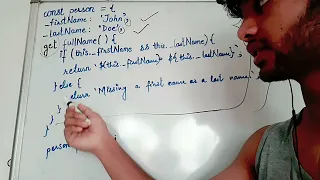 const person = {
_firstName: 'John',
_lastName: 'Doe',
get fullName() {
if (this._firstName && this._lastName) {
return `${this._firstName} ${this._lastName}`;
} else {
return 'Missing a first name or a last name.';
}
}
person